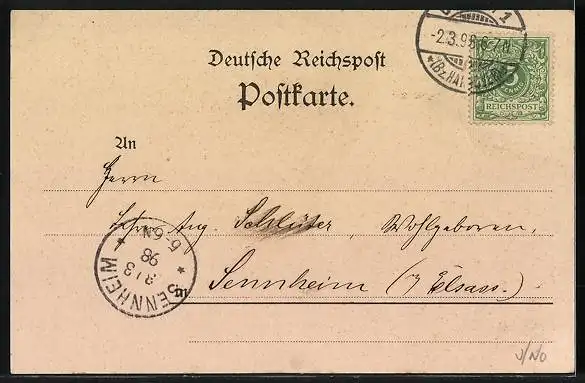 -2.3.98.6-7N
*(Bz.HALLE)*
5
REICHSPOST
Deutsche Reichspost
Postkarte.
An
Herrn
Aug. Schlüter, Wohlgeboren,
in
Sennheim (i/ Elsass.)
SENNHEIM
3
98
5-6N
J/No